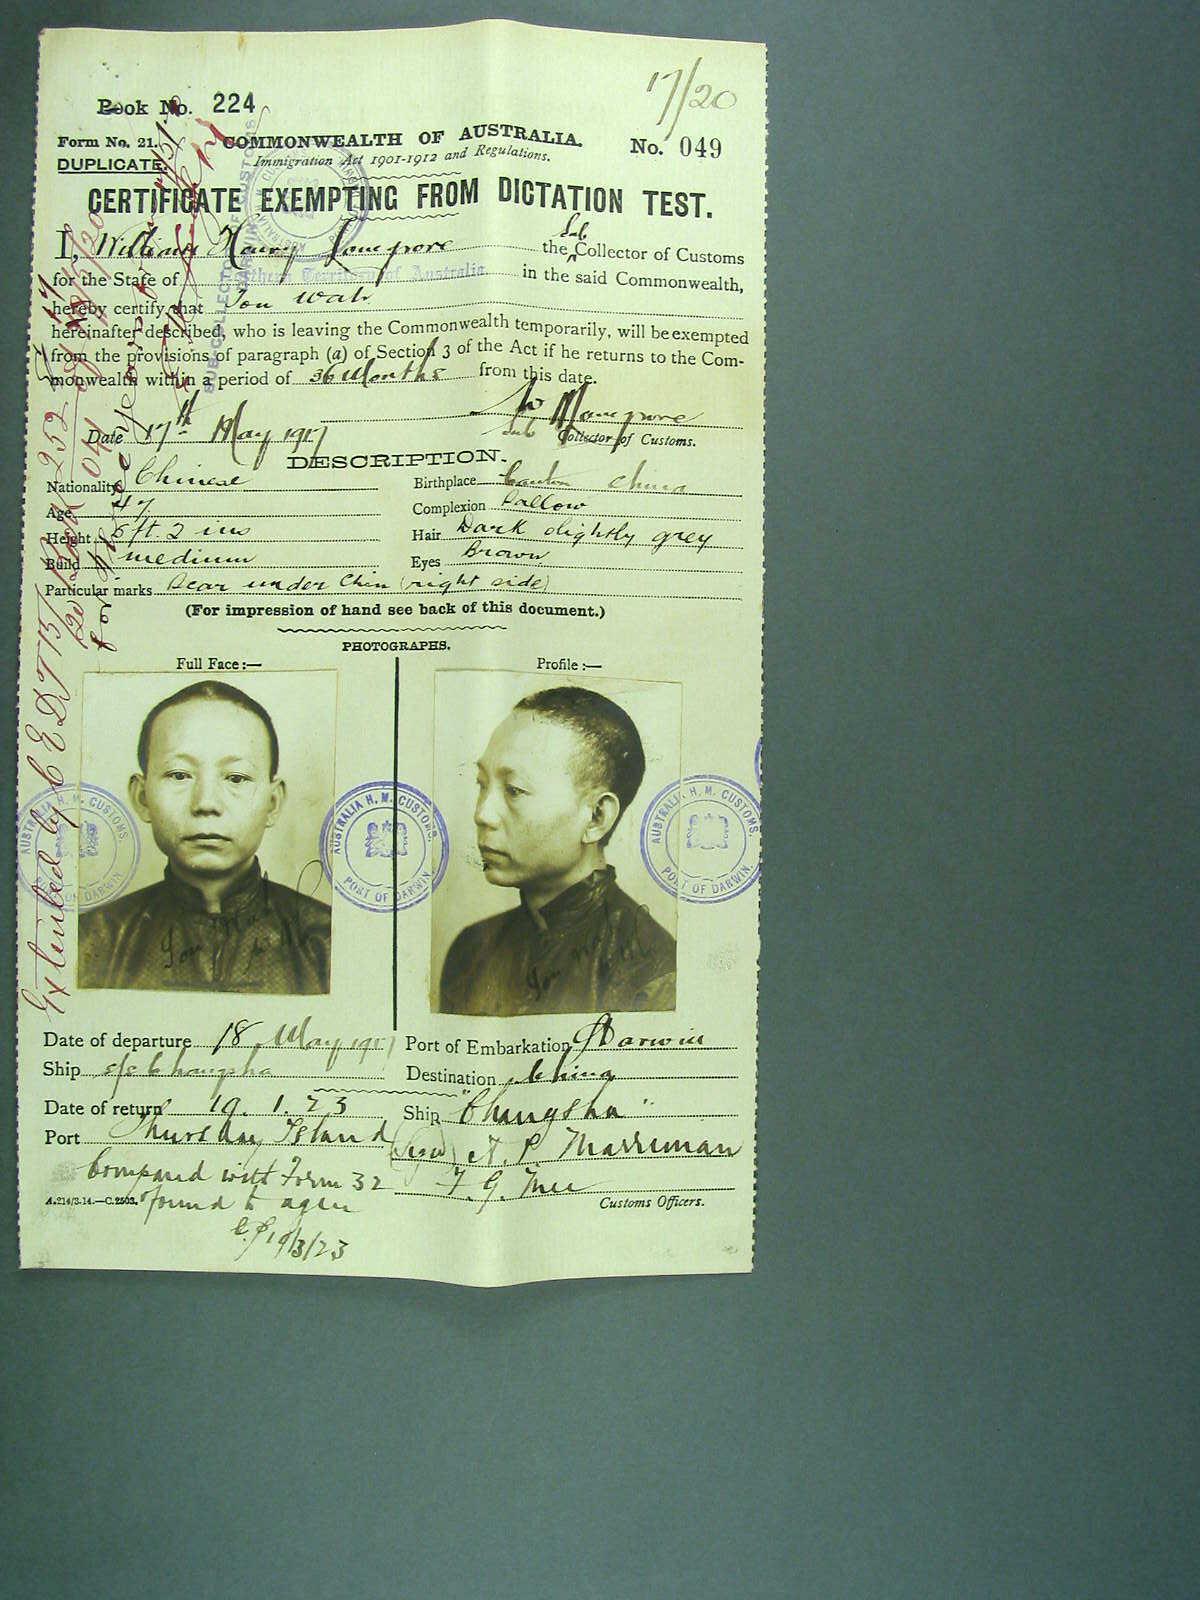 17/20
Book No. 224
Form No. 21.
COMMONWEALTH OF AUSTRALIA.
No. 049
DUPLICATE.
Immigration Act 1901-1912 and Regulations.
CERTIFICATE EXEMPTING FROM DICTATION TEST.
I, William Henry the Sub Collector of Customs
for the State of Northern Territory of Australia in the said Commonwealth,
hereby certify that Tou Wah
hereinafter described, who is leaving the Commonwealth temporarily, will be exempted
from the provisions of paragraph (a) of Section 3 of the Act if he returns to the Com-
monwealth within a period of 36 Months from this date.
W
Date 17th May 1917
Sub Collector of Customs.
DESCRIPTION.
Nationality Chinese Birthplace Canton China
Age 47 Complexion Sallow
Height 5 ft. 2 ins Hair Dark slightly grey
Build medium Eyes Brown
Particular marks Scar under Chin (right side)
(For impression of hand see back of this document.)
PHOTOGRAPHS.
Full Face:— Profile:—
AUSTRALIA H. M. CUSTOMS.
PORT OF DARWIN.
AUSTRALIA H. M. CUSTOMS.
PORT OF DARWIN.
AUSTRALIA H. M. CUSTOMS.
PORT OF DARWIN.
Date of departure 18 May 1917 Port of Embarkation Darwin
Ship s/s Changsha Destination China
Date of return 19. 1. 23 Ship "Changsha"
Port Thursday Island (Sgd) A. P. Marriman
Compared with Form 32 F. G.
A.214/3.14.—C.2503. found to agree Customs Officers.
19/3/23
SUB-COLLECTOR OF CUSTOMS
DARWIN
Extended by C E D T 13/